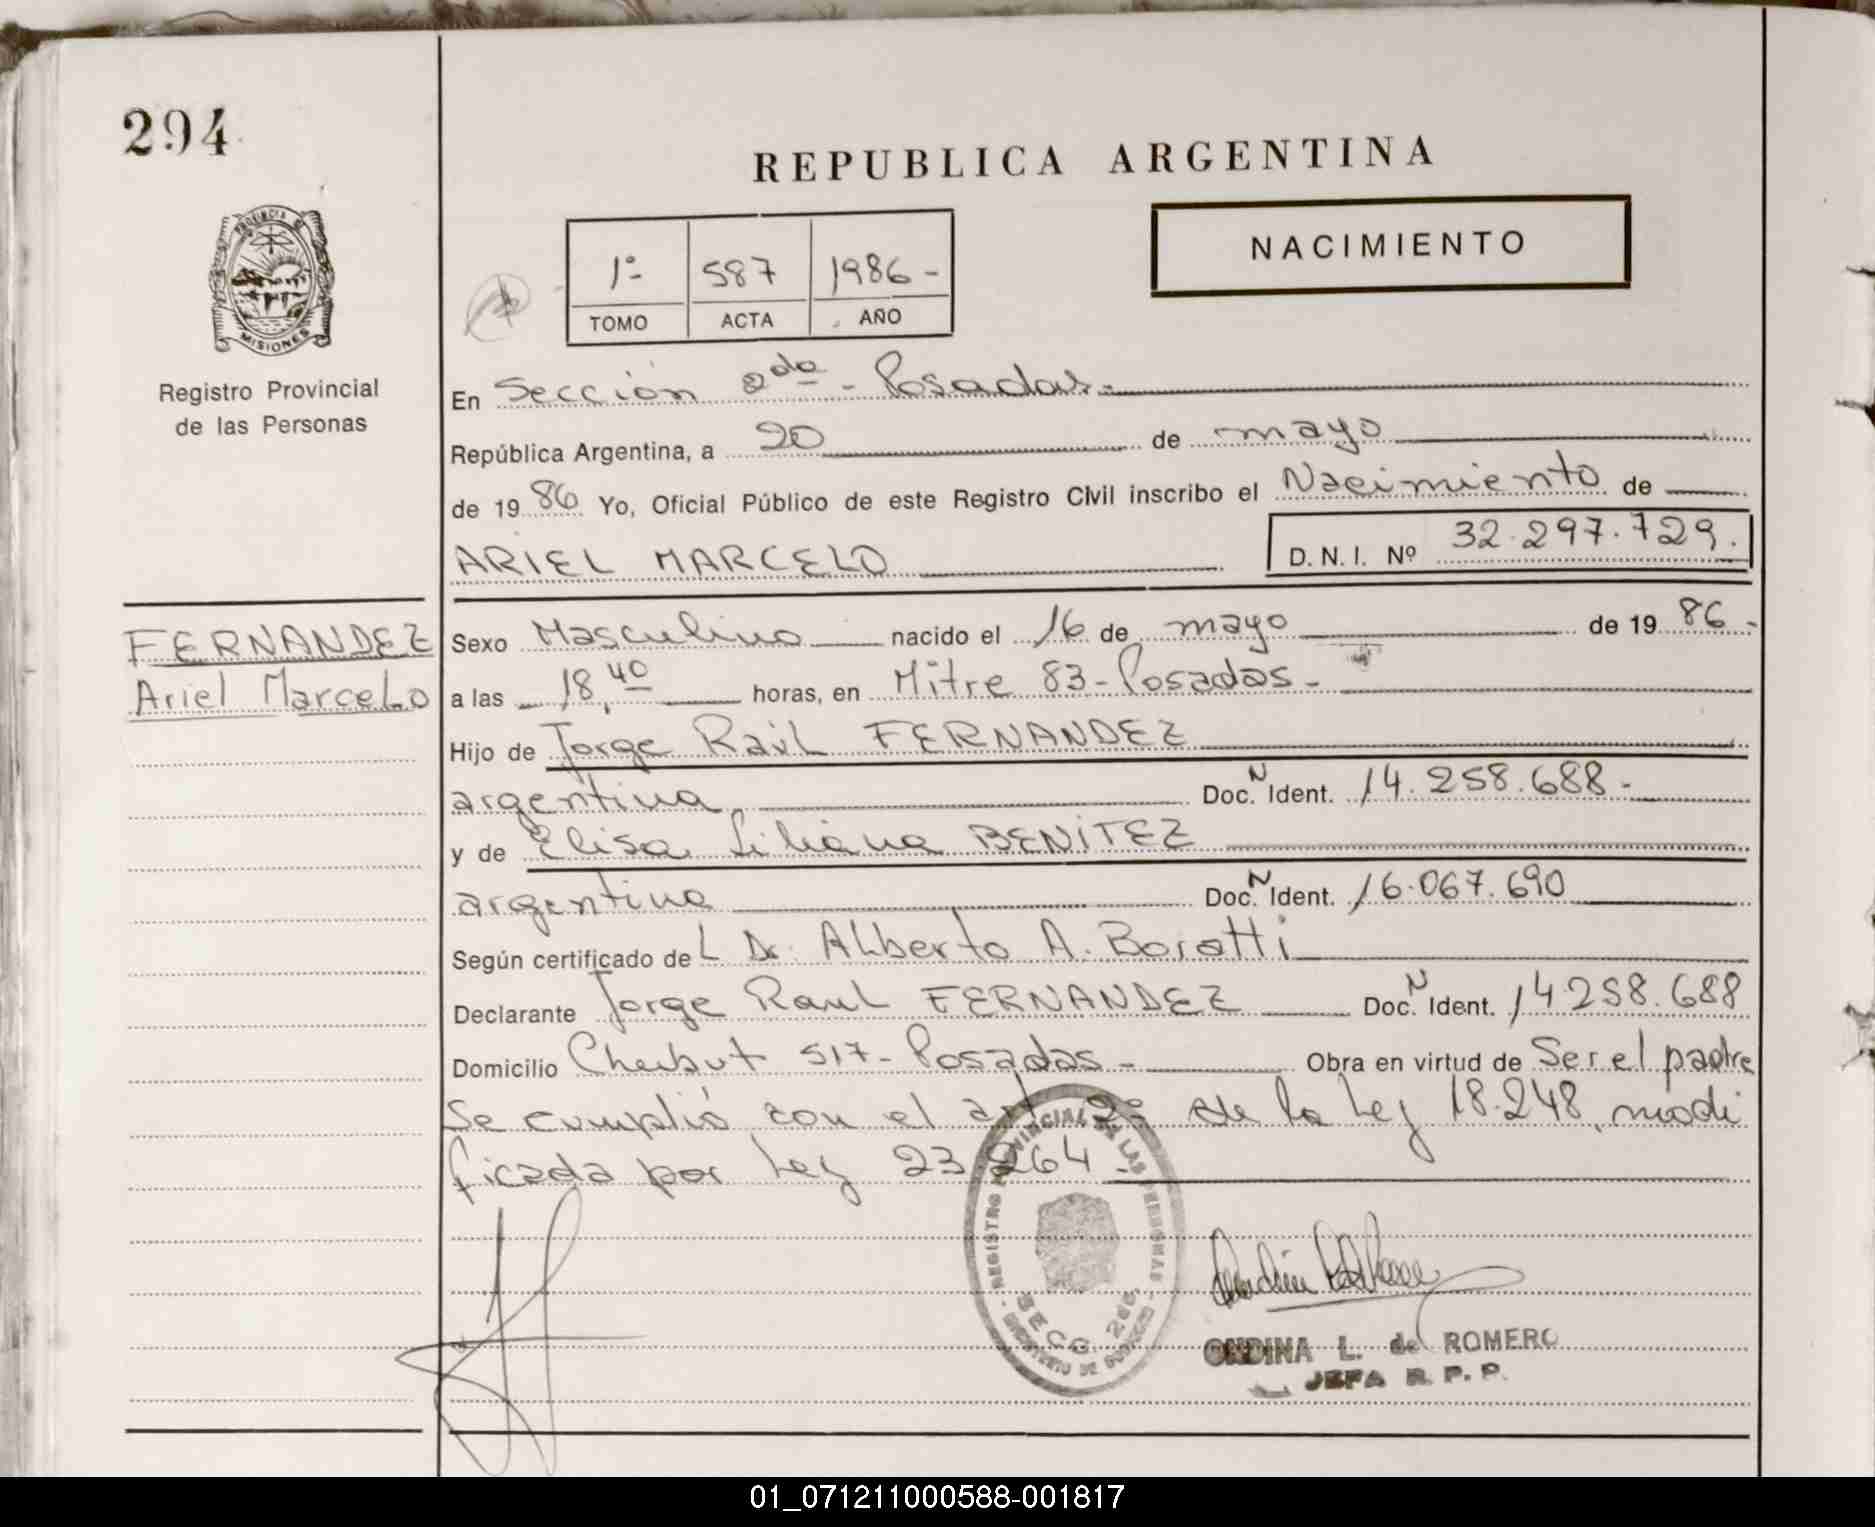 294
REPUBLICA ARGENTINA
PROVINCIA DE
MISIONES
Registro Provincial
de las Personas
1º 587 1986-
TOMO ACTA AÑO
NACIMIENTO
En Sección 2da - Posadas.-
República Argentina, a 20 de mayo
de 1986 Yo, Oficial Público de este Registro Civil inscribo el Nacimiento de
ARIEL MARCELO D.N.I. Nº 32.297.729.
FERNANDEZ
Ariel Marcelo
Sexo Masculino nacido el 16 de mayo de 1986-
a las 18,40 horas, en Mitre 83-Posadas-
Hijo de Jorge Raúl FERNANDEZ
argentina Doc. N Ident. 14.258.688-
y de Elisa Liliana BENITEZ
argentina Doc. N Ident. 16.067.690
Según certificado del Dr. Alberto A. Borotti
Declarante Jorge Raul FERNANDEZ Doc. N Ident. 14258.688
Domicilio Chubut 517-Posadas- Obra en virtud de Ser el padre
Se cumplió con el art 2º de la Ley 18.248, modi
ficada por Ley 23264-
REGISTRO PROVINCIAL DE LAS PERSONAS
SECC. 2da.
MINISTERIO DE GOBIERNO
ONDINA L. de ROMERO
JEFA R. P. P.
01_071211000588-001817